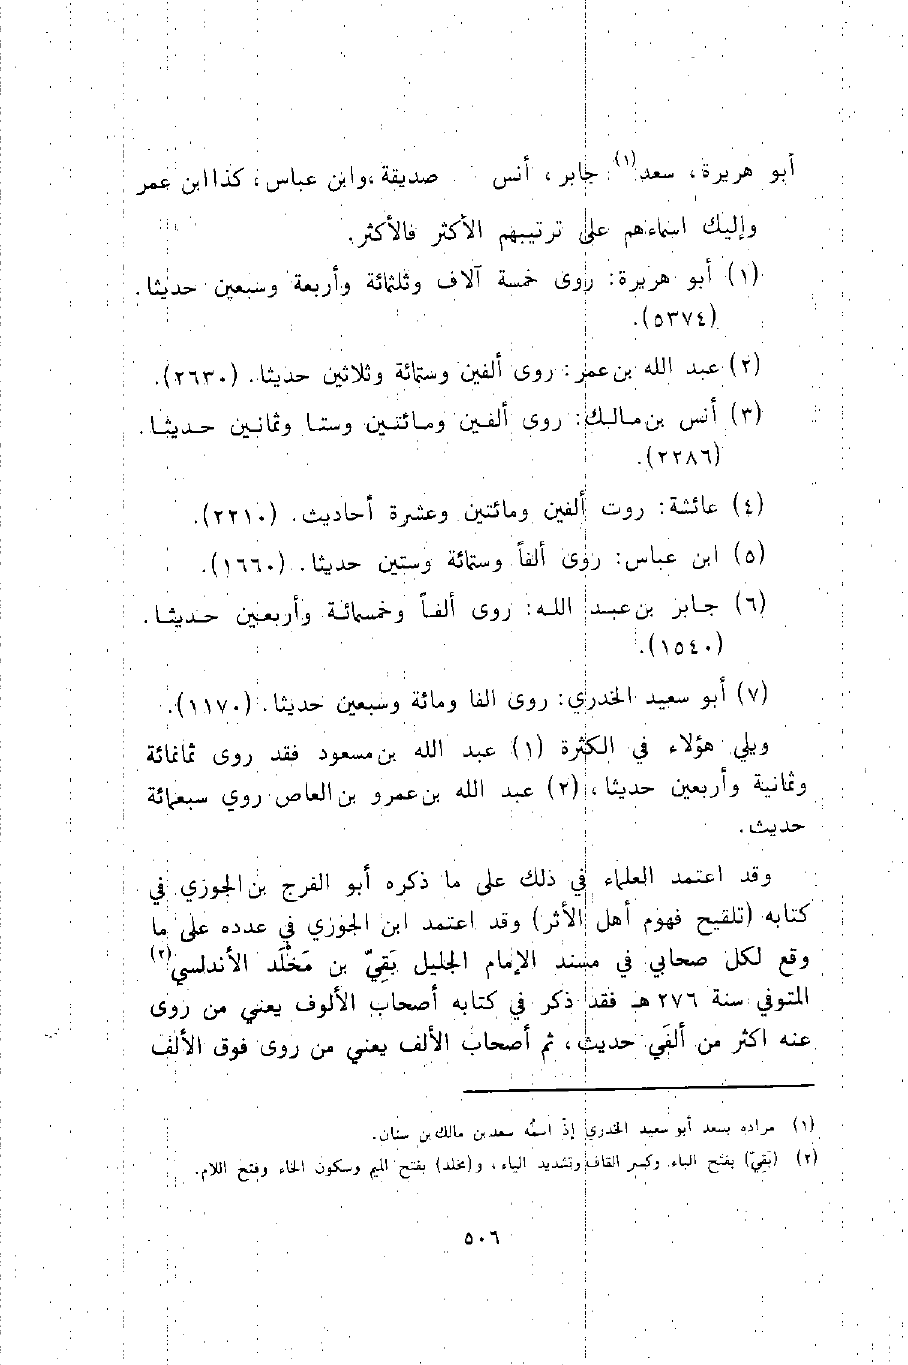 أبو هريرة، سعد(١) جابر، أنس صديقة، وابن عباس، كذا ابن عمر
وإليك اسماءهم على ترتيبهم الأكثر فالأكثر.
(١) أبو هريرة: روى خمسة آلاف وثلثمائة وأربعة وسبعين حديثا.
(٥٣٧٤).
(٢) عبد الله بن عمر: روى ألفين وستمائة وثلاثين حديثا. (٢٦٣٠).
(٣) أنس بن مالك: روى ألفين ومائتين وستا وثمانين حديثا.
(٢٢٨٦).
(٤) عائشة: روت ألفين ومائتين وعشرة أحاديث. (٢٢١٠).
(٥) ابن عباس: روى ألفاً وستمائة وستين حديثا. (١٦٦٠).
(٦) جابر بن عبد الله: روى ألفاً وخمسمائة وأربعين حديثا.
(١٥٤٠).
(٧) أبو سعيد الخدري: روى الفا ومائة وسبعين حديثا. (١١٧٠).
ويلي هؤلاء في الكثرة (١) عبد الله بن مسعود فقد روى ثمانمائة
وثمانية وأربعين حديثا، (٢) عبد الله بن عمرو بن العاص روي سبعمائة
حديث.
وقد اعتمد العلماء في ذلك على ما ذكره أبو الفرج بن الجوزي في
كتابه (تلقيح فهوم أهل الأثر) وقد اعتمد ابن الجوزي في عدده على ما
وقع لكل صحابي في مسند الإمام الجليل بَقِيّ بن مَخْلَد الأندلسي(٢)
المتوفي سنة ٢٧٦ هـ فقد ذكر في كتابه أصحاب الألوف يعني من روى
عنه اكثر من ألفَي حديث، ثم أصحاب الألف يعني من روى فوق الألف
(١) مراده بسعد أبو سعيد الخدري إذ اسمُه سعد بن مالك بن سنان.
(٢) (بَقِيّ) بفتح الباء وكسر القاف وتشديد الياء، و(مخلد) بفتح الميم وسكون الخاء وفتح اللام.
٥٠٦